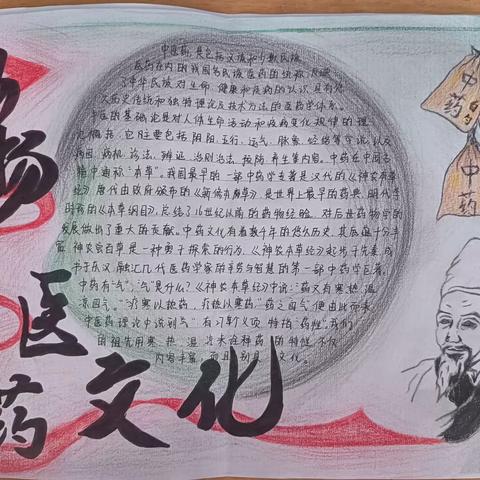 扬
医
药
文化
中药
中药
中医药是包括汉族和少数民族
医药在内的我国各民族医药的统称,反映
了中华民族对生命、健康和疾病的认识,具有悠
久历史传统和独特理论及技术方法的医药学体系。
中医的基础论是对人体生命活动和疾病变化规律的理
论概括,它主要包括阴阳、五行、运气、脏象、经络等学说,以及
病因、病机、诊法、辨证、治则治法、预防、养生等内容。中药在中国古
籍中通称"本草"。我国最早的一部中药学专著是汉代的《神农本草
经》,唐代由政府颁布的《新修本草》,是世界上最早的药典。明代李
时珍的《本草纲目》,总结了16世纪以前的药物经验,对后世药物学的
发展做出了重大的贡献。中药文化有着数千年的悠久历史,其底蕴十分丰
富。神农尝百草是一种勇于探索的行为,《神农本草经》起步于先秦,成
书于东汉,融汇几代医药学家的辛劳与智慧的第一部中药学巨著。
中药有"气","气"是什么?《神农本草经》中说:"药又有寒热温
凉四气。""疗寒以热药,疗热以寒药。"药之四气便由此而来
中医药理论中说到"气"有习义项,特指"药性",我们
的祖先用寒、热、温、冷来诠释药的特性,不仅
内容丰富,而且别具文化。